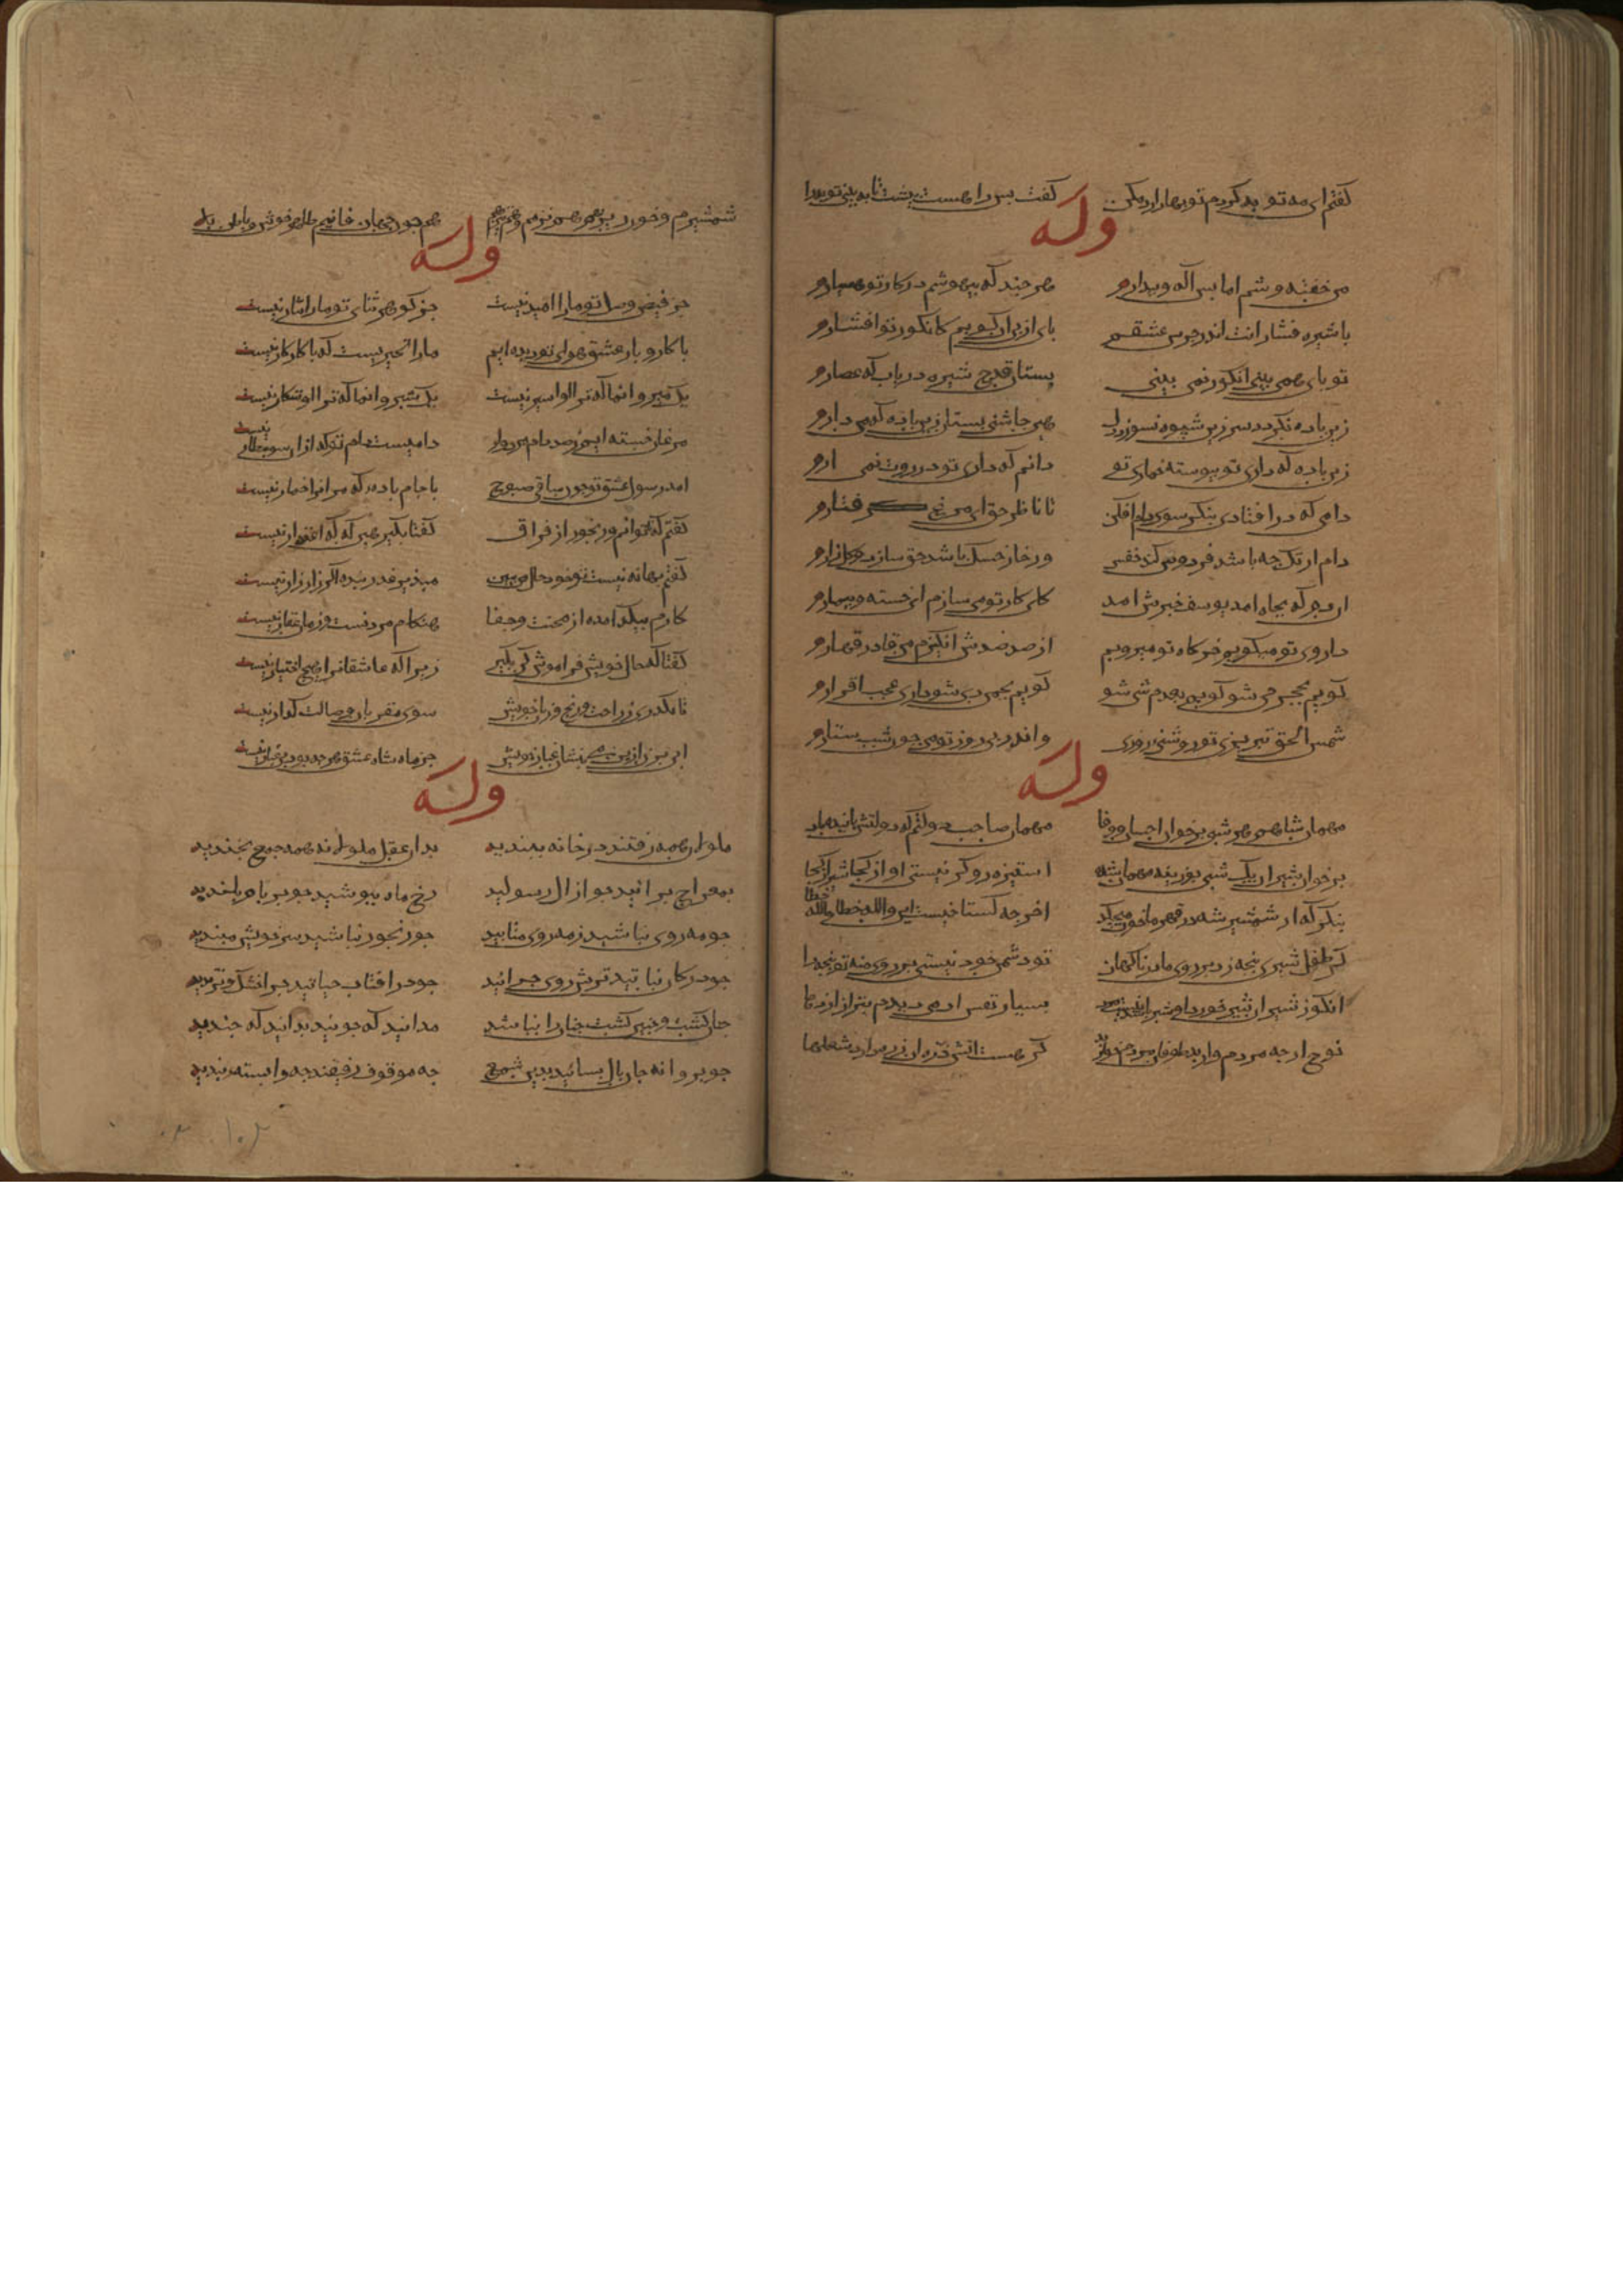 کفتم ای مه توبه کردم توبها را رد مکن کفت بس راهست پیشت تا ببینی توبه را
وله
من خفته وشم اما بس اکه و بیدارم هر چند که بیهوشم در کار تو هشیارم
با شیره فشارانت اندر چرس عشقم پای از پی ان کوبم کانکور تو افشارم
تو پای همی بینی انکور نمی بینی بستان قدح شیره دریاب که عصارم
زین باده نکردد سر زین شیوه نسوزد دل هین چاشنی بستان زین باده که من دارم
زین باده که داری تو پیوسته خماری تو دانم که داری تو در روت نمی ارم
دامی که در افتادی بنکر سوی دام افکن تا ناظر حق ای من کفتارم
دام ار تک چه باشد فردوس کند حقش ور خار خسک باشد حق سازد
ان دم که بچاه امد یوسف خبرش امد کای کار تو می سازم ای خسته و بیمارم
داروی تو میکوبم خرکاه تو میروبم از صد ضدش انکیزم من قادر قهارم
کویم بحجر حی شو کویم بعدم شی شو کویم بچمن دی شو داری عجب اقرارم
شمس الحق تبریزی تو روشنی روزی و اندر پی روز تو من چون شب ستارم
وله
مهمان شاهم هر شبی بر خوان احسان و وفا مهمان صاحب دولتم که دولتش پاینده باد
بر خوان شیران یک شبی بوزینه مهمان شد استیزه رو کر نیستی او از کجا شیر از کجا
بنکر که از شمشیر شه در قهرمان خون میچکد اخر چه کستاخیست این والله خطا والله خطا
کر طفل شیری پنجه زد بر روی مادر ناکهان تو دشمن خود نیستی بر روی منه تو پنجه را
انکو ز شیران شیر خورد او شیر باشد نیست مرد بسیار نقش ادمی دیدم
نوح ار چه مردم وار بد طوفان مردم خوار بد کر هست اتش ذره ان ذره دارد شعلها
شمشیرم و خون ریز من هم نرمم و هم تیز من هم چون جهان فانیم ظاهر خوش و باطن بلا
وله
جز فیض وصل تو ما را امید نیست جز کوهر ثنای تو ما را نثار نیست
با کار و بار عشق هوای تو دیده ایم ما را تحیریست که با کار کار نیست
یک میر وا نما که ترا او اسیر نیست یک شیر وا نما که ترا او شکار نیست
مرغان خسته ایم ز صد دام دامیست دام تو که از ان سو مطار نیست
امد رسول عشق تو چون ساقی صبوح با جام باده که مر انرا خمار نیست
کفتم که ناتوانم و رنجور از فراق کفتا بکیر هین که که اعتذار نیست
کفتم بهانه نیست تو خود حال من ببین مپذیر عذر بنده اکر زار زار نیست
کارم بیک دم امده از محنت و جفا هنکام مردنست و زمان عقار نیست
کفتا که حال خویش فراموش کن بکیر زیرا که عاشقانرا هیچ اختیار نیست
تا نکذری ز راحت و رنج و ز یاد خویش سوی مقربان وصالت کذار نیست
ابی بزن ازین می و بنشان غبار هوش جز ماه شاه عشق هر چه بود جز غبار نیست
وله
ملولان همه رفتند در خانه ببندید بدان عقل ملولانه همه جمع بخندید
بمعراج برائید چو از ال رسولید رخ ماه ببوشید چو بر بام بلندید
چو مه روی نباشید ز مه روی متابید چو رنجور نباشید سر خویش مبندید
چو در کان نباتید ترش روی چرائید چو در افتاب حیاتید چرا خشک و نژندید
چنان کشت و چنین کشت چنان را نباشد مدانید که چونید بدانید که چندید
چو پروانه جان باز بسائید بدین شمع چه موقوف رفیقید چه وابسته بندید
۱۰۲